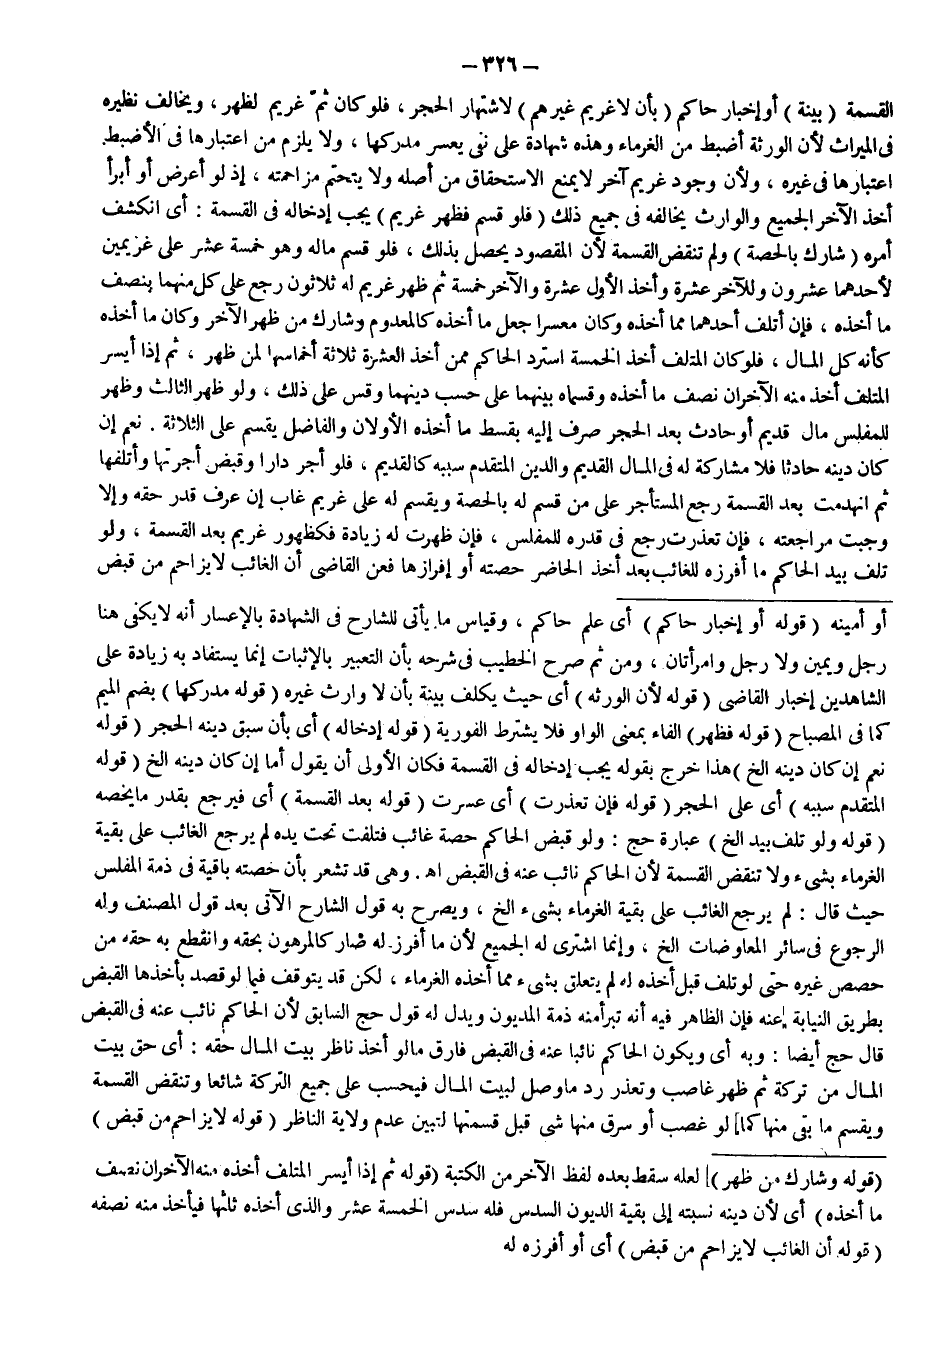 – ٣٢٦ –
القسمة ( بينة ) أو إخبار حاكم ( بأن لاغريم غيرهم ) لاشتهار الحجر ، فلو كان ثمّ غريم لظهر ، ويخالف نظيره
فى الميراث لأن الورثة أضبط من الغرماء وهذه شهادة على نفى يعسر مدركها ، ولا يلزم من اعتبارها فى الأضبط
اعتبارها فى غيره ، ولأن وجود غريم آخر لايمنع الاستحقاق من أصله ولا يتحتم مزاحمته ، إذ لو أعرض أو أبرأ
أخذ الآخر الجميع والوارث يخالفه فى جميع ذلك ( فلو قسم فظهر غريم ) يجب إدخاله فى القسمة : أى انكشف
أمره ( شارك بالحصة ) ولم تنقض القسمة لأن المقصود يحصل بذلك ، فلو قسم ماله وهو خمسة عشر على غريمين
لأحدهما عشرون وللآخر عشرة وأخذ الأول عشرة والآخر خمسة ثم ظهر غريم له ثلاثون رجع على كل منهما بنصف
ما أخذه ، فإن أتلف أحدهما مما أخذه وكان معسرا جعل ما أخذه كالمعدوم وشارك من ظهر الآخر وكان ما أخذه
كأنه كل المال ، فلو كان المتلف أخذ الخمسة استرد الحاكم ممن أخذ العشرة ثلاثة أخماسها لمن ظهر ، ثم إذا أيسر
المتلف أخذ منه الآخران نصف ما أخذه وقسماه بينهما على حسب دينهما وقس على ذلك ، ولو ظهر الثالث وظهر
للمفلس مال قديم أو حادث بعد الحجر صرف إليه بقسط ما أخذه الأولان والفاضل يقسم على الثلاثة . نعم إن
كان دينه حادثا فلا مشاركة له فى المال القديم والدين المتقدم سببه كالقديم ، فلو أجر دارا وقبض أجرتها وأتلفها
ثم انهدمت بعد القسمة رجع المستأجر على من قسم له بالحصة ويقسم له على غريم غاب إن عرف قدر حقه وإلا
وجبت مراجعته ، فإن تعذرت رجع فى قدره للمفلس ، فإن ظهرت له زيادة فكظهور غريم بعد القسمة ، ولو
تلف بيد الحاكم ما أفرزه للغائب بعد أخذ الحاضر حصته أو إفرازها فعن القاضى أن الغائب لايزاحم من قبض
أو أمينه ( قوله أو إخبار حاكم ) أى علم حاكم ، وقياس ما يأتى للشارح فى الشهادة بالإعسار أنه لايكفى هنا
رجل ويمين ولا رجل وامرأتان ، ومن ثم صرح الخطيب فى شرحه بأن التعبير بالإثبات إنما يستفاد به زيادة على
الشاهدين إخبار القاضى ( قوله لأن الورثه ) أى حيث يكلف بينة بأن لا وارث غيره ( قوله مدركها ) بضم الميم
كما فى المصباح ( قوله فظهر) الفاء بمعنى الواو فلا يشترط الفورية ( قوله إدخاله ) أى بأن سبق دينه الحجر ( قوله
نعم إن كان دينه الخ ) هذا خرج بقوله يجب إدخاله فى القسمة فكان الأولى أن يقول أما إن كان دينه الخ ( قوله
المتقدم سببه ) أى على الحجر ( قوله فإن تعذرت ) أى عسرت ( قوله بعد القسمة ) أى فيرجع بقدر مايخصه
( قوله ولو تلف بيد الخ ) عبارة حج : ولو قبض الحاكم حصة غائب فتلفت تحت يده لم يرجع الغائب على بقية
الغرماء بشىء ولا تنقض القسمة لأن الحاكم نائب عنه فى القبض اه . وهى قد تشعر بأن حصته باقية فى ذمة المفلس
حيث قال : لم يرجع الغائب على بقية الغرماء بشىء الخ ، ويصرح به قول الشارح الآتى بعد قول المصنف وله
الرجوع فى سائر المعاوضات الخ ، وإنما اشترى له الجميع لأن ما أفرز له صار كالمرهون بحقه وانقطع به حقه من
حصص غيره حتى لو تلف قبل أخذه له لم يتعلق بشىء مما أخذه الغرماء ، لكن قد يتوقف فيما لو قصد بأخذها القبض
بطريق النيابة عنه فإن الظاهر فيه أنه تبرأ منه ذمة المديون ويدل له قول حج السابق لأن الحاكم نائب عنه فى القبض
قال حج أيضا : وبه أى ويكون الحاكم نائبا عنه فى القبض فارق مالو أخذ ناظر بيت المال حقه : أى حق بيت
المال من تركة ثم ظهر غاصب وتعذر رد ماوصل لبيت المال فيحسب على جميع التركة شائعا وتنقض القسمة
ويقسم ما بقى منها كما لو غصب أو سرق منها شى قبل قسمتها لتبين عدم ولاية الناظر ( قوله لايزاحم من قبض )
(قوله وشارك من ظهر ) لعله سقط بعده لفظ الآخر من الكتبة (قوله ثم إذا أيسر المتلف أخذه منه الآخران نصف
ما أخذه ) أى لأن دينه نسبته إلى بقية الديون السدس فله سدس الخمسة عشر والذى أخذه ثلثها فيأخذ منه نصفه
( قوله أن الغائب لايزاحم من قبض ) أى أو أفرزه له